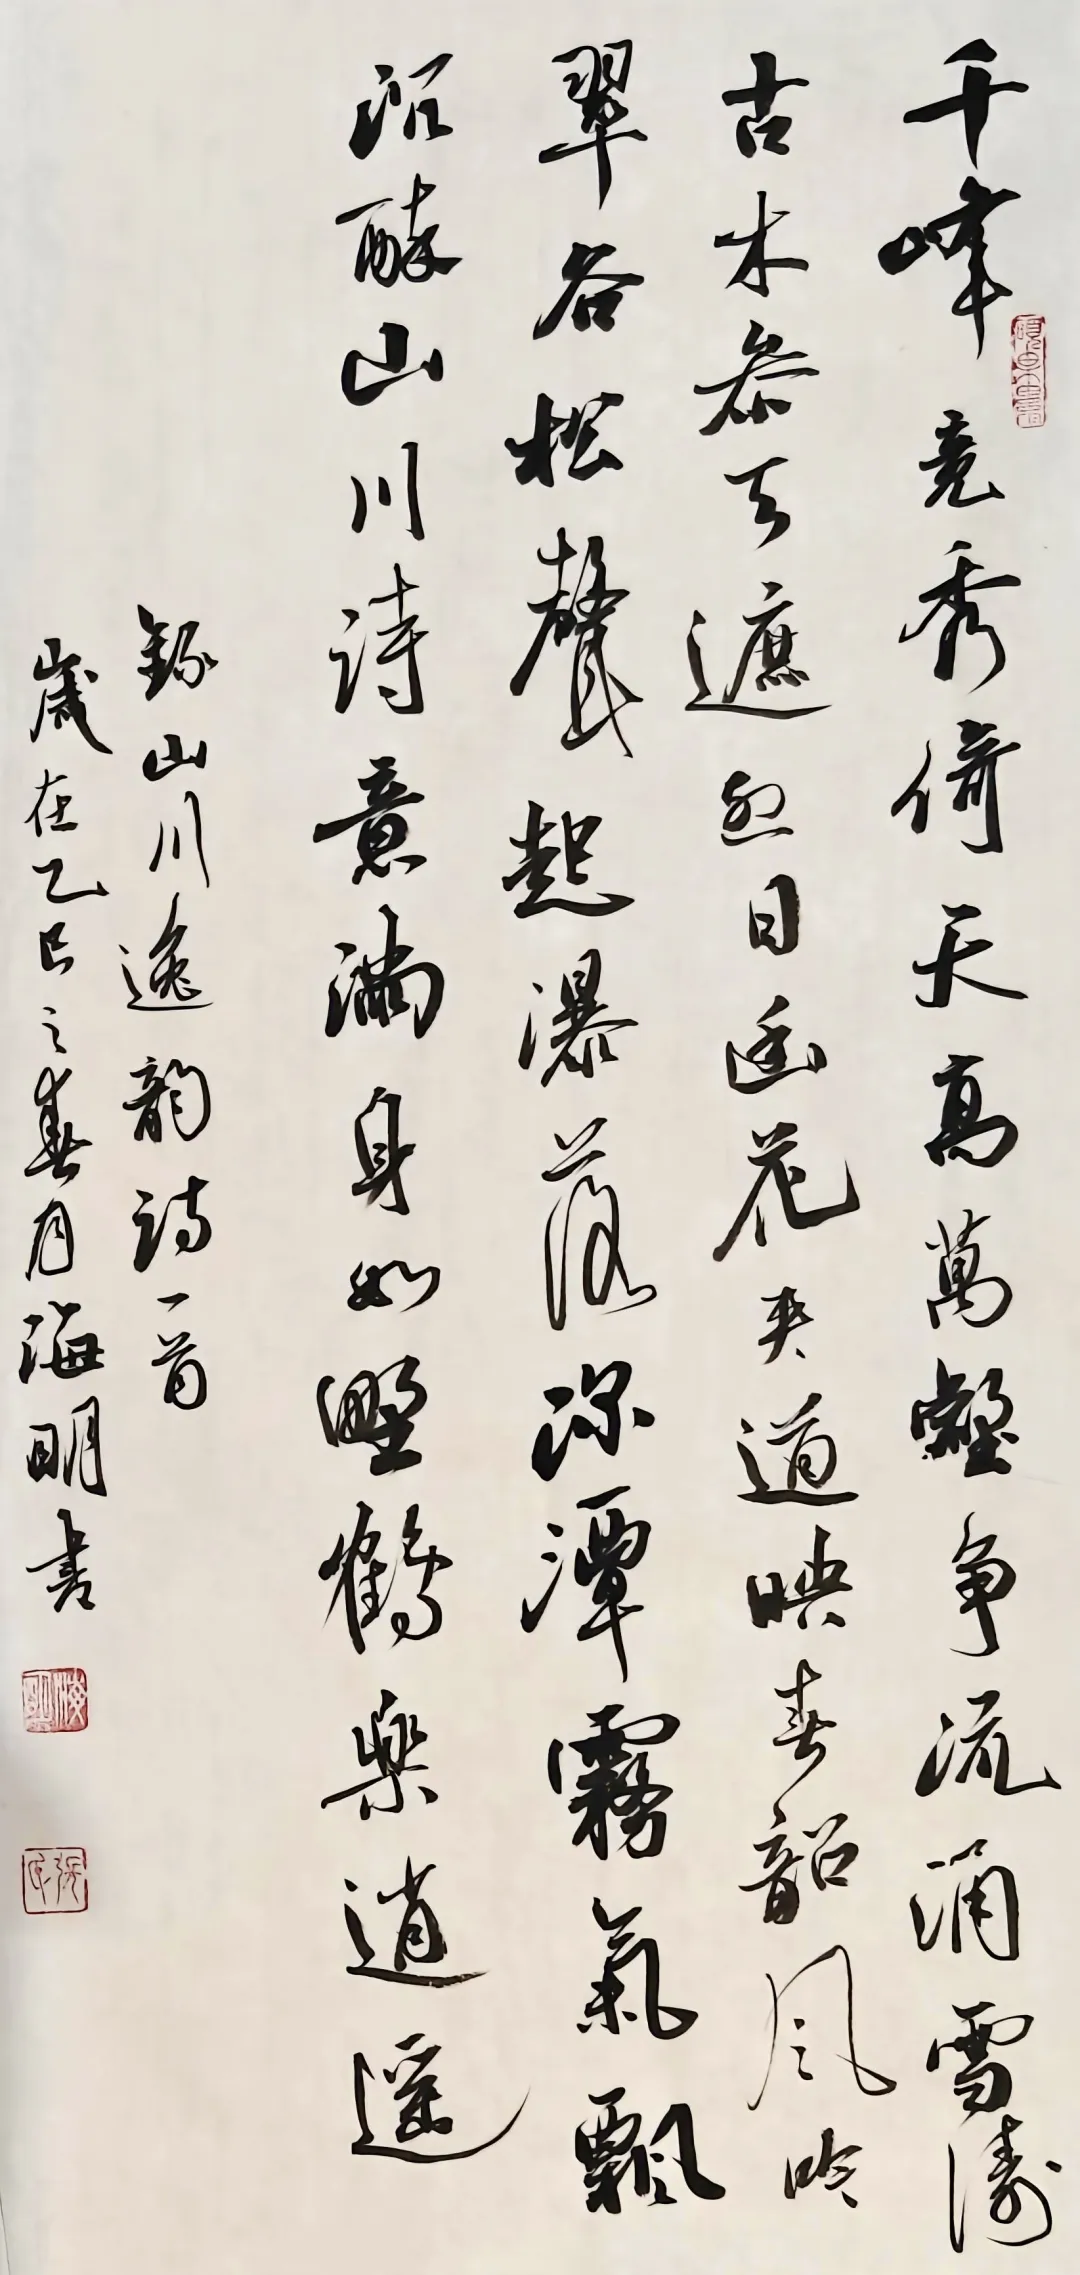 千峰竞秀倚天高萬壑争流涌雪涛
古木参天遮烈日幽花夹道映春韶风吟
翠谷松聲起瀑落深潭霧氣飄
沉醉山川诗意满身如野鹤樂逍遥
錄山川逸韵诗一首
歲在乙巳之春月海明书
海明
张氏